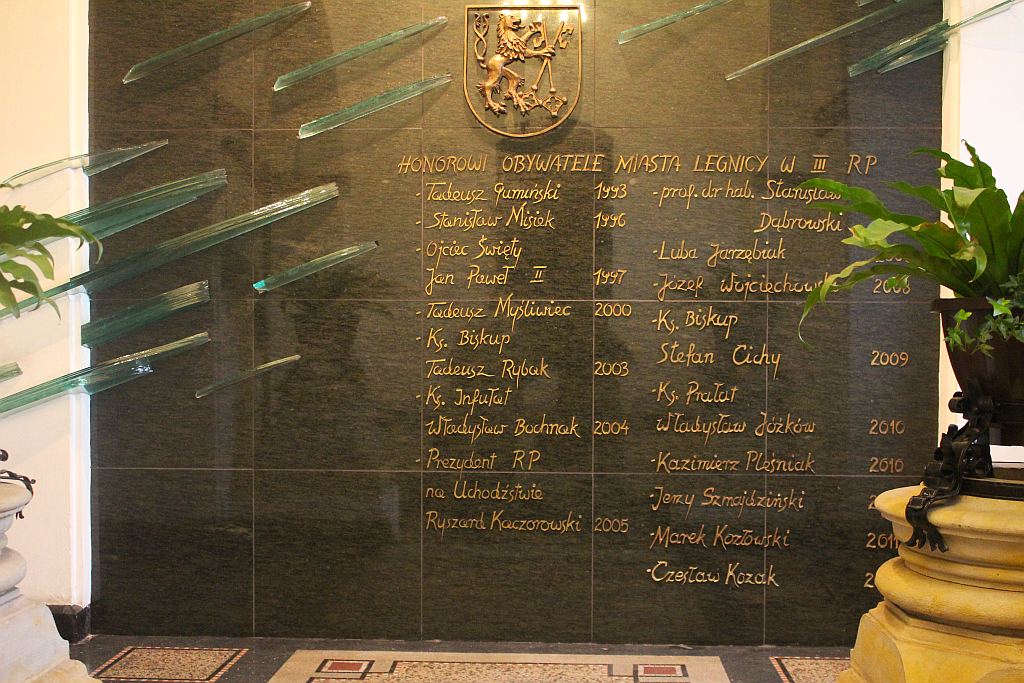 HONOROWI OBYWATELE MIASTA LEGNICY W III RP
- Tadeusz Gumiński 1993
- Stanisław Misiek 1996
- Ojciec Święty
Jan Paweł II 1997
- Tadeusz Myśliwiec 2000
- Ks. Biskup
Tadeusz Rybak 2003
- Ks. Infułat
Władysław Bochnak 2004
- Prezydent RP
na Uchodźstwie
Ryszard Kaczorowski 2005
- prof. dr hab. Stanisław
Dąbrowski
- Luba Jarzębiak
- Józef Wojciechowski 2008
- Ks. Biskup
Stefan Cichy 2009
- Ks. Prałat
Władysław Jóźków 2010
- Kazimierz Pleśniak 2010
- Jerzy Szmajdziński
- Marek Kozłowski 2011
- Czesław Kozak